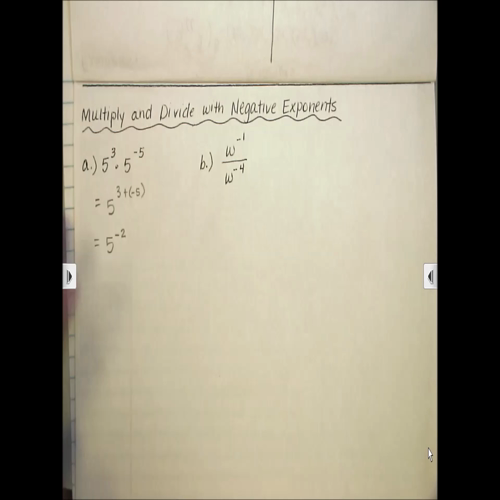 Multiply and Divide with Negative Exponents
a.) 5³ · 5⁻⁵
= 5³⁺⁽⁻⁵⁾
= 5⁻²
b.) w⁻¹
w⁻⁴